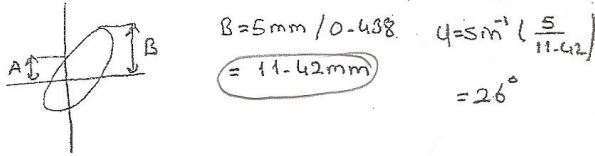 A
B
B=5mm/0.438
= 11.42mm
φ=sin⁻¹(5/11.42)
=26°